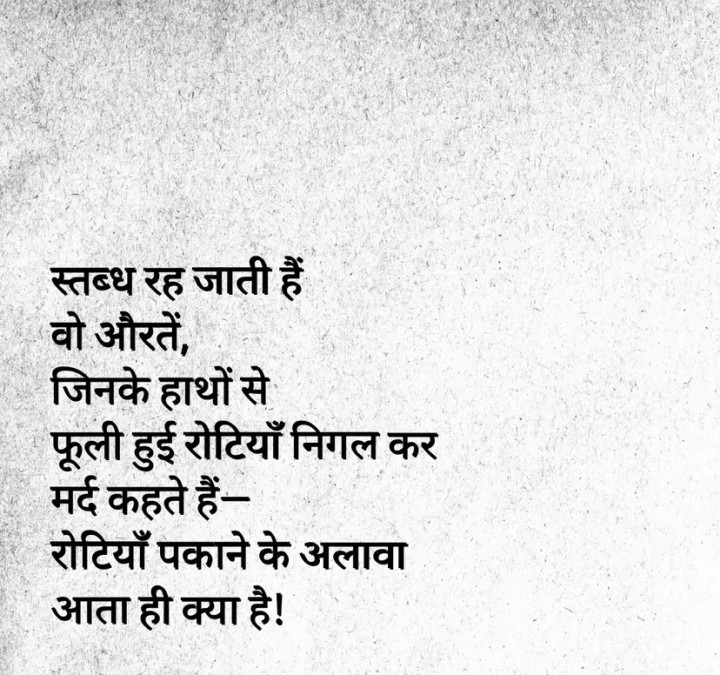 स्तब्ध रह जाती हैं
वो औरतें,
जिनके हाथों से
फूली हुई रोटियाँ निगल कर
मर्द कहते हैं—
रोटियाँ पकाने के अलावा
आता ही क्या है!